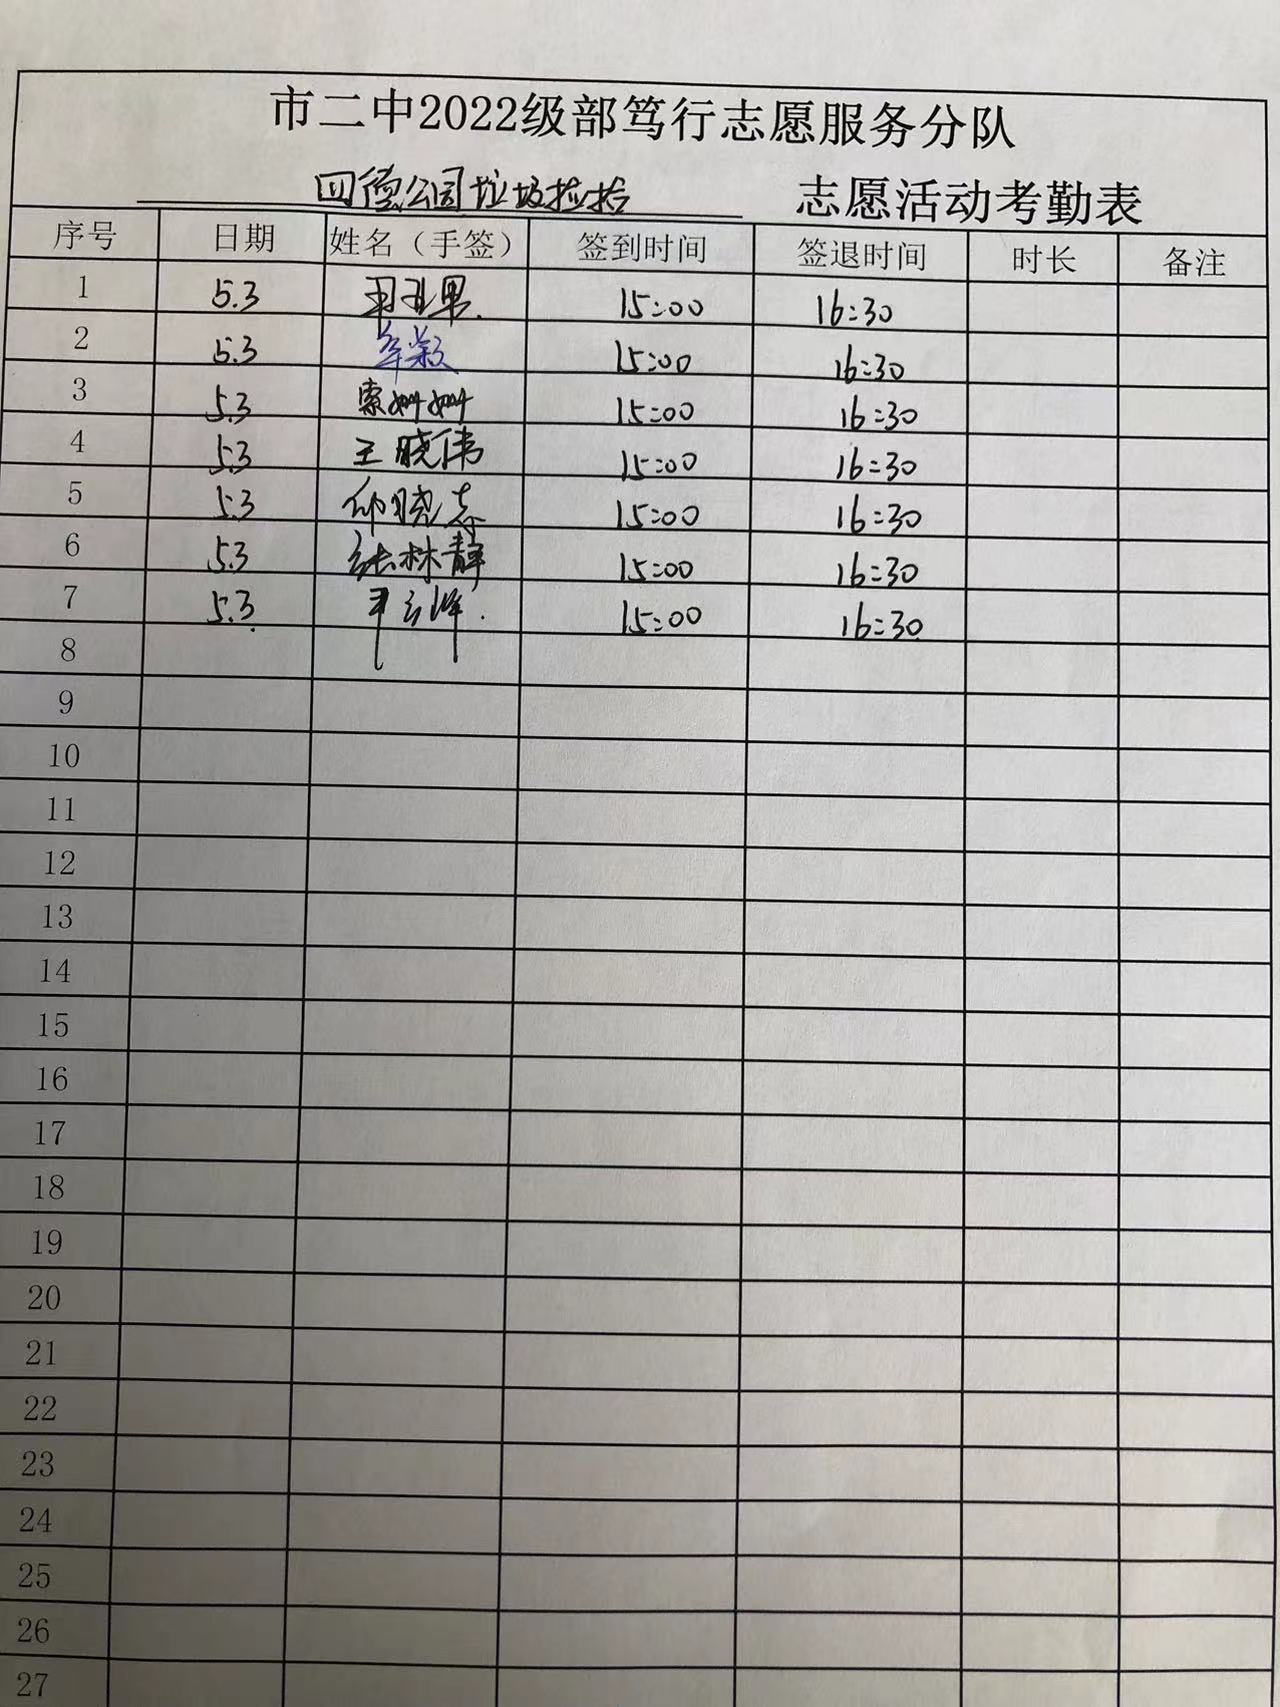 市二中2022级部笃行志愿服务分队
四德公园垃圾捡拾 志愿活动考勤表
序号 日期 姓名（手签） 签到时间 签退时间 时长 备注
1 5.3 15:00 16:30
2 5.3 牟颖 15:00 16:30
3 5.3 索姗姗 15:00 16:30
4 5.3 王晓伟 15:00 16:30
5 5.3 15:00 16:30
6 5.3 张林静 15:00 16:30
7 5.3 15:00 16:30
8
9
10
11
12
13
14
15
16
17
18
19
20
21
22
23
24
25
26
27